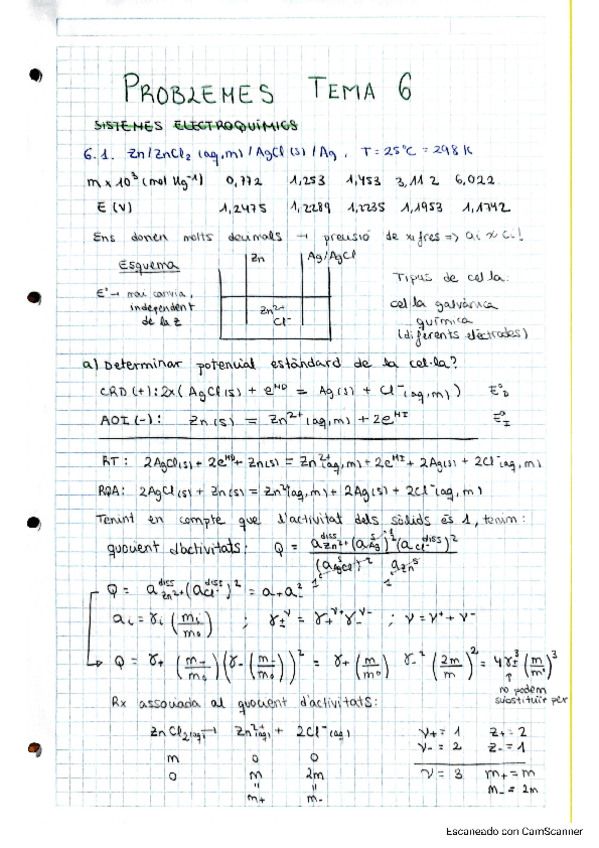 PROBLEMES TEMA 6
SISTEMES ELECTROQUÍMICS
6.1. Zn/ZnCl₂ (aq,m) / AgCl (s) / Ag , T = 25ºC = 298 K
m x 10³ (mol Kg⁻¹) 0,772 1,253 1,453 3,112 6,022
E (V) 1,2475 1,2289 1,2235 1,1953 1,1742
Ens donen molts decimals → precisió de xifres => ai ≈ ci!
Esquema
Zn Ag/AgCl
Zn²⁺
Cl⁻
E° → mai canvia,
independent
de la z
Tipus de cel·la:
cel·la galvànica
química
(diferents elèctrodes)
a) Determinar potencial estàndard de la cel·la?
CRD (+): 2x (AgCl(s) + e^HD = Ag(s) + Cl⁻(aq,m)) E°D
AOI (-): Zn(s) = Zn²⁺(aq,m) + 2e^HI E°I
RT: 2AgCl(s) + 2e^HD + Zn(s) = Zn²⁺(aq,m) + 2e^HI + 2Ag(s) + 2Cl⁻(aq,m)
RQA: 2AgCl(s) + Zn(s) = Zn²⁺(aq,m) + 2Ag(s) + 2Cl⁻(aq,m)
Tenint en compte que l'activitat dels sòlids és 1, tenim:
quocient d'activitats: Q = a^diss Zn²⁺ (a^s Ag)² (a^diss Cl⁻)² / (a^s AgCl)² a^s Zn
Q = a^diss Zn²⁺ (a^diss Cl⁻)² = a₊a₋²
ai = γi (mi/m0) ; γ±^ν = γ₊^ν+ γ₋^ν- ; ν = ν⁺ + ν⁻
Q = γ₊ (m/m0) (γ₋ (m/m0))² = γ₊ (m/m0) γ₋² (2m/m)² = 4γ±³ (m/m°)³
no podem
substituir per
Rx associada al quocient d'activitats:
ZnCl₂(aq) → Zn²⁺(aq) + 2Cl⁻(aq)
m 0 0
0 m 2m
m₊ m₋
ν₊ = 1 z₊ = 2
ν₋ = 2 z₋ = 1
ν = 3 m₊ = m
m₋ = 2m
Escaneado con CamScanner